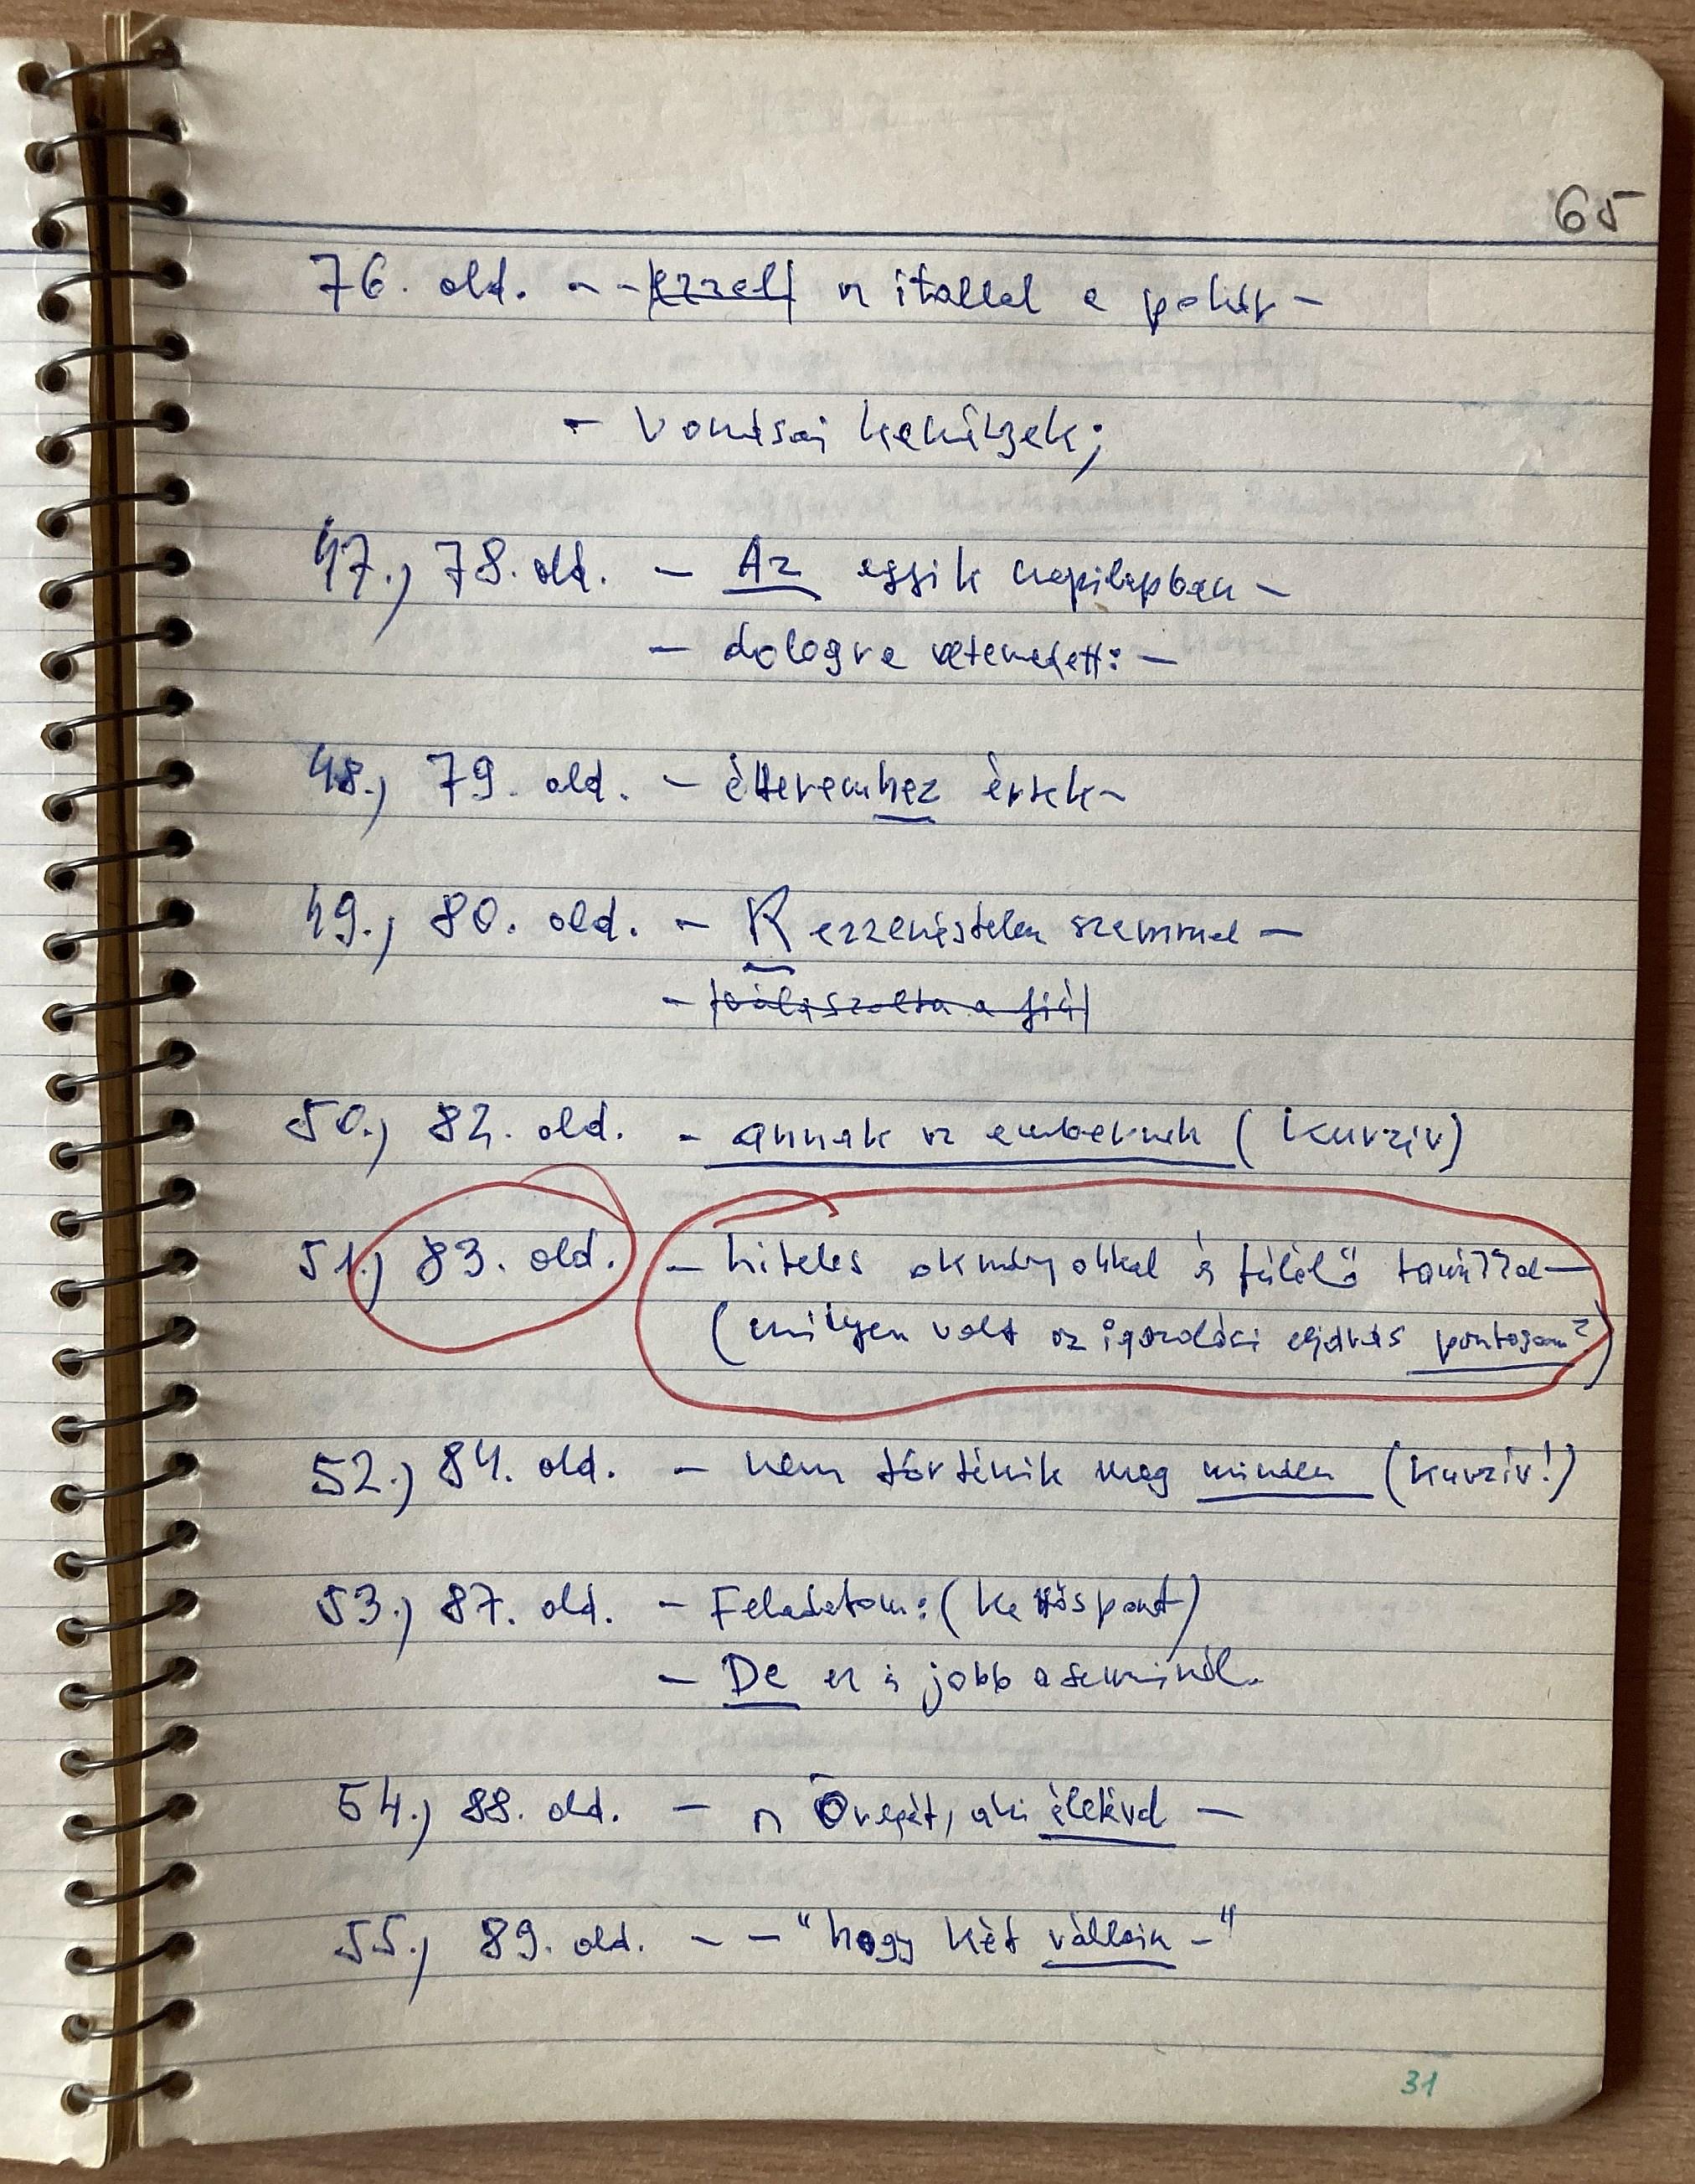 65
76. old. - - ezzel az itallal a pohár -
- vonásai kemények;
47.) 78. old. - Az egyik napilapban -
- dologra vetemedett: -
48.) 79. old. - étteremhez értek -
49.) 80. old. - Rezzenéstelen szemmel -
- válaszolta a fiú
50.) 82. old. - annak az embernek (kurzív)
51.) 83. old. - hiteles okmányokkal és túlélő tanúkkal -
(milyen volt az igazolási eljárás pontosan?)
52.) 84. old. - nem történik meg minden (kurzív!)
53.) 87. old. - Feladatom: (kettőspont)
- De ez is jobb a semminél.
54.) 88. old. - az Öregét, aki életével -
55.) 89. old. - - "hogy két vállain -"
31